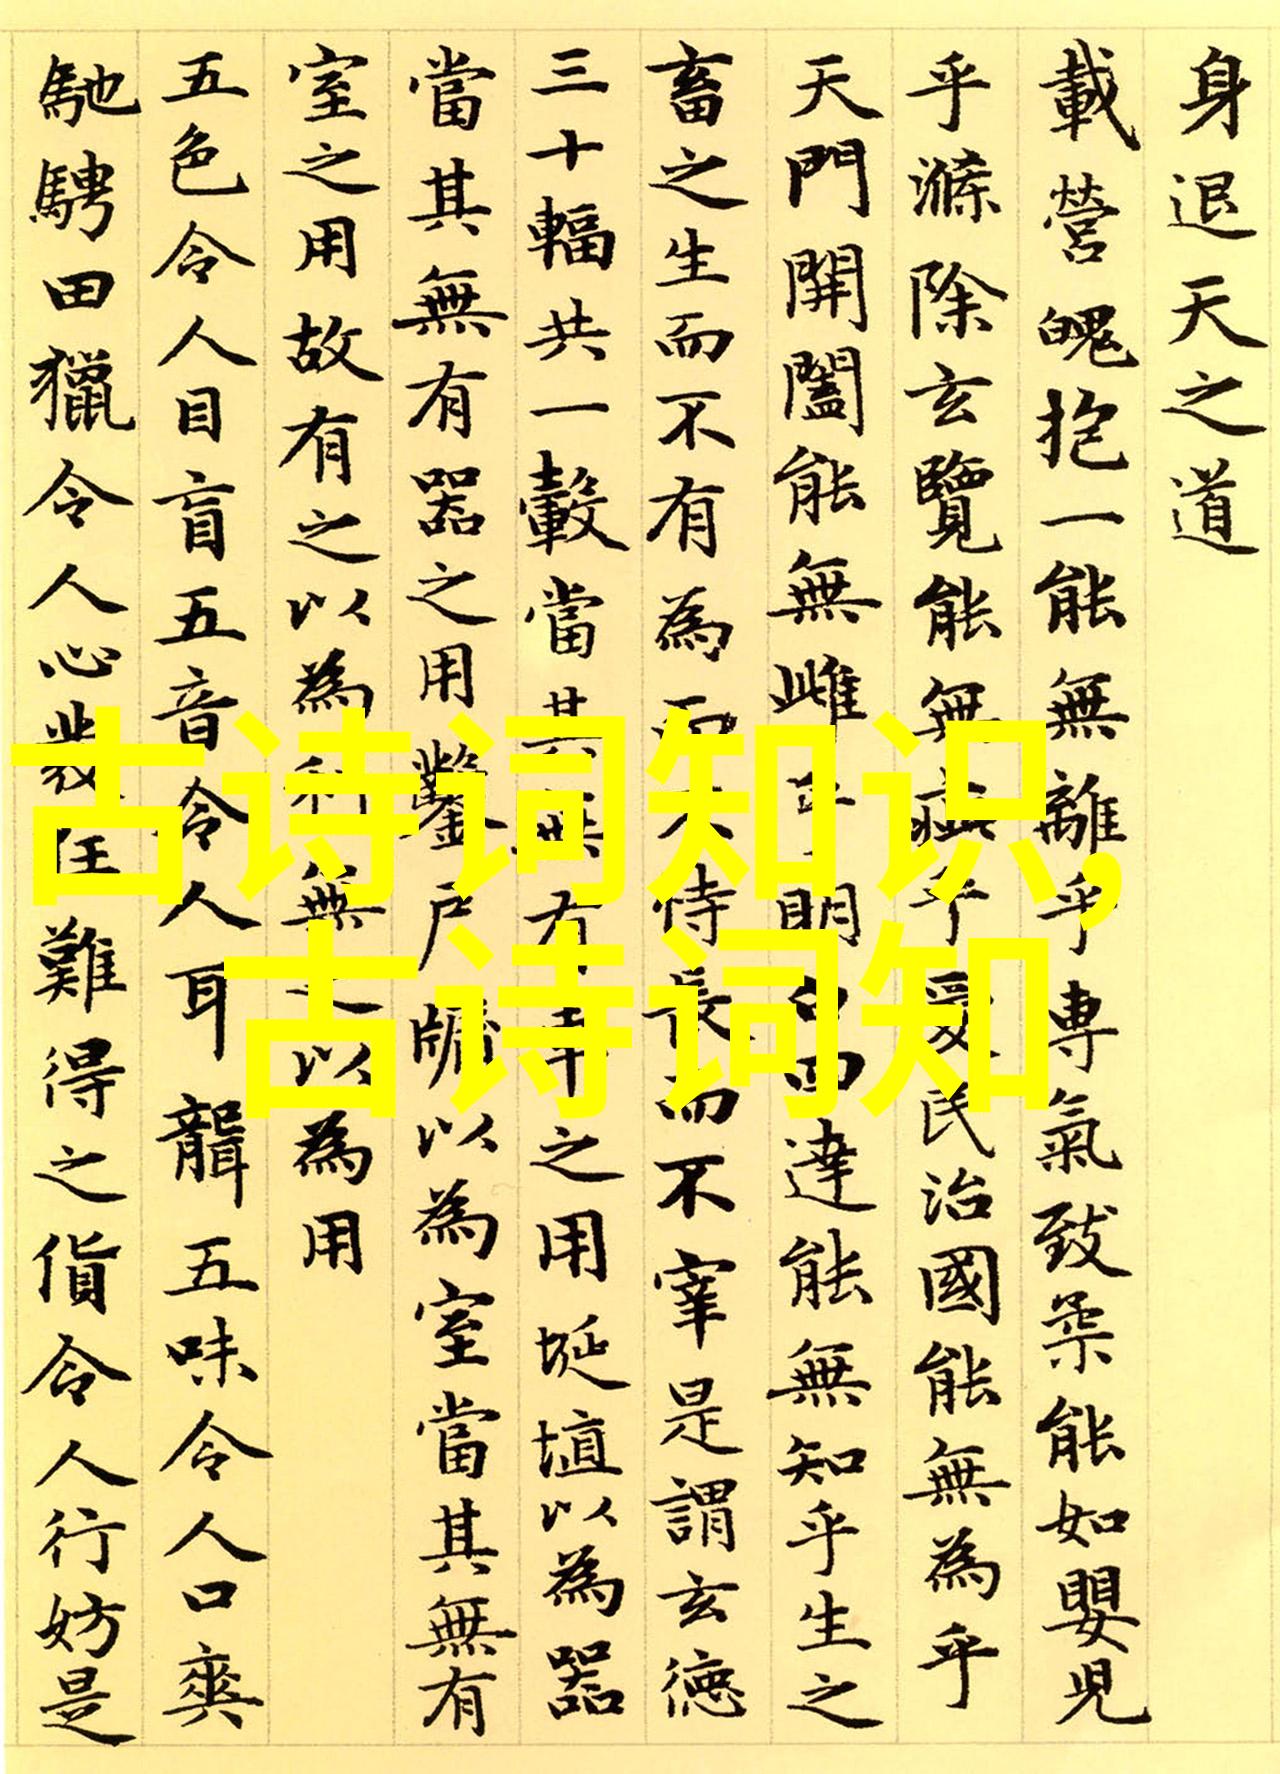 身退天之道
載營魄抱一能無離乎專氣致柔能如嬰兒
乎滌除玄覽能無疵乎愛民治國能無為乎
天門開闔能無雌乎明白四達能無知乎生之
畜之生而不有為而不恃長而不宰是謂玄德
三十輻共一轂當其無有車之用埏埴以為器
當其無有器之用鑿戶牖以為室當其無有
室之用故有之以為利無之以為用
五色令人目盲五音令人耳聾五味令人口爽
馳騁田獵令人心發狂難得之貨令人行妨是
古诗词知识,
古诗词知